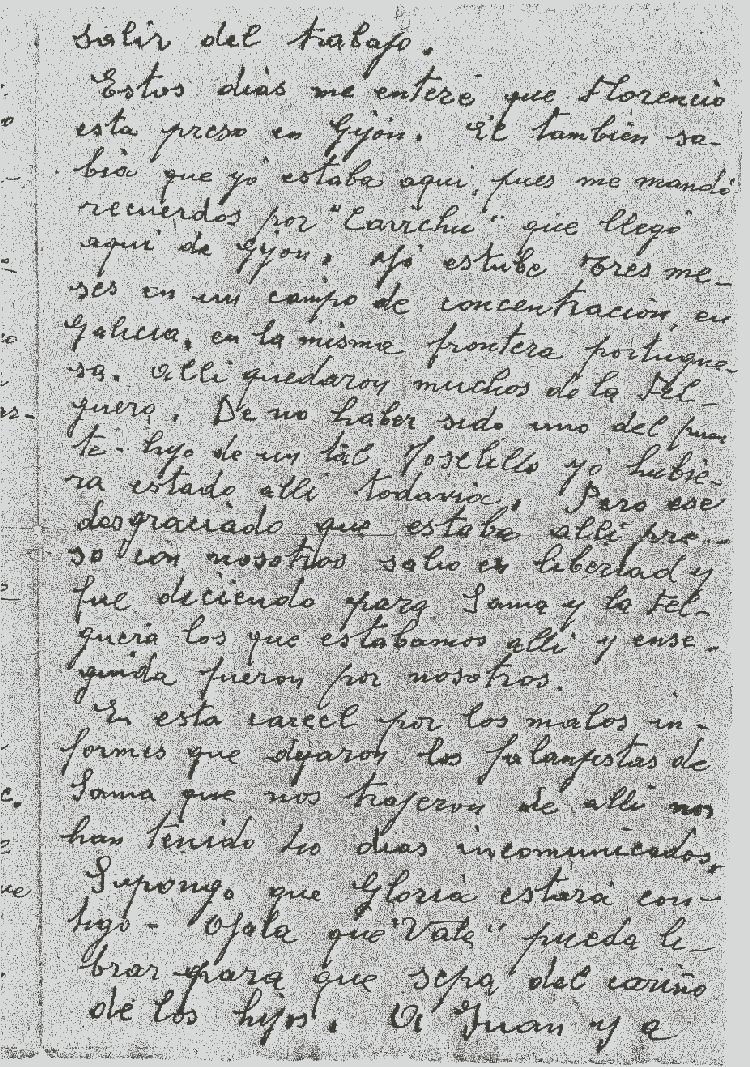 salir del trabajo.
Estos dias me enteré que Florencio
esta preso en Gijón. El tambien sa-
bia que yo estaba aqui, pues me mandó
recuerdos por "Carrchu" que llegó
aqui de Gijon. Yo estube tres me-
ses en un campo de concentración, en
Galicia, en la misma frontera portugue-
sa. Alli quedaron muchos de la Fel-
guera. De no haber sido uno del puen
te - hijo de un tal Joselillo yo hubie-
ra estado alli todavia. Pero ese
desgraciado que estaba alli pre-
so con nosotros salio en libertad y
fue diciendo para Sama y la Fel-
guera los que estabamos alli y ense-
guida fueron por nosotros.
En esta carcel por los malos in-
formes que dejaron los falangistas de
Sama que nos trajeron de alli nos
han tenido dias incomunicados,
Supongo que Gloria estará con-
tigo - Ojala que "Vale" pueda li-
brar para que sepa del cariño
de los hijos. A Juan y a